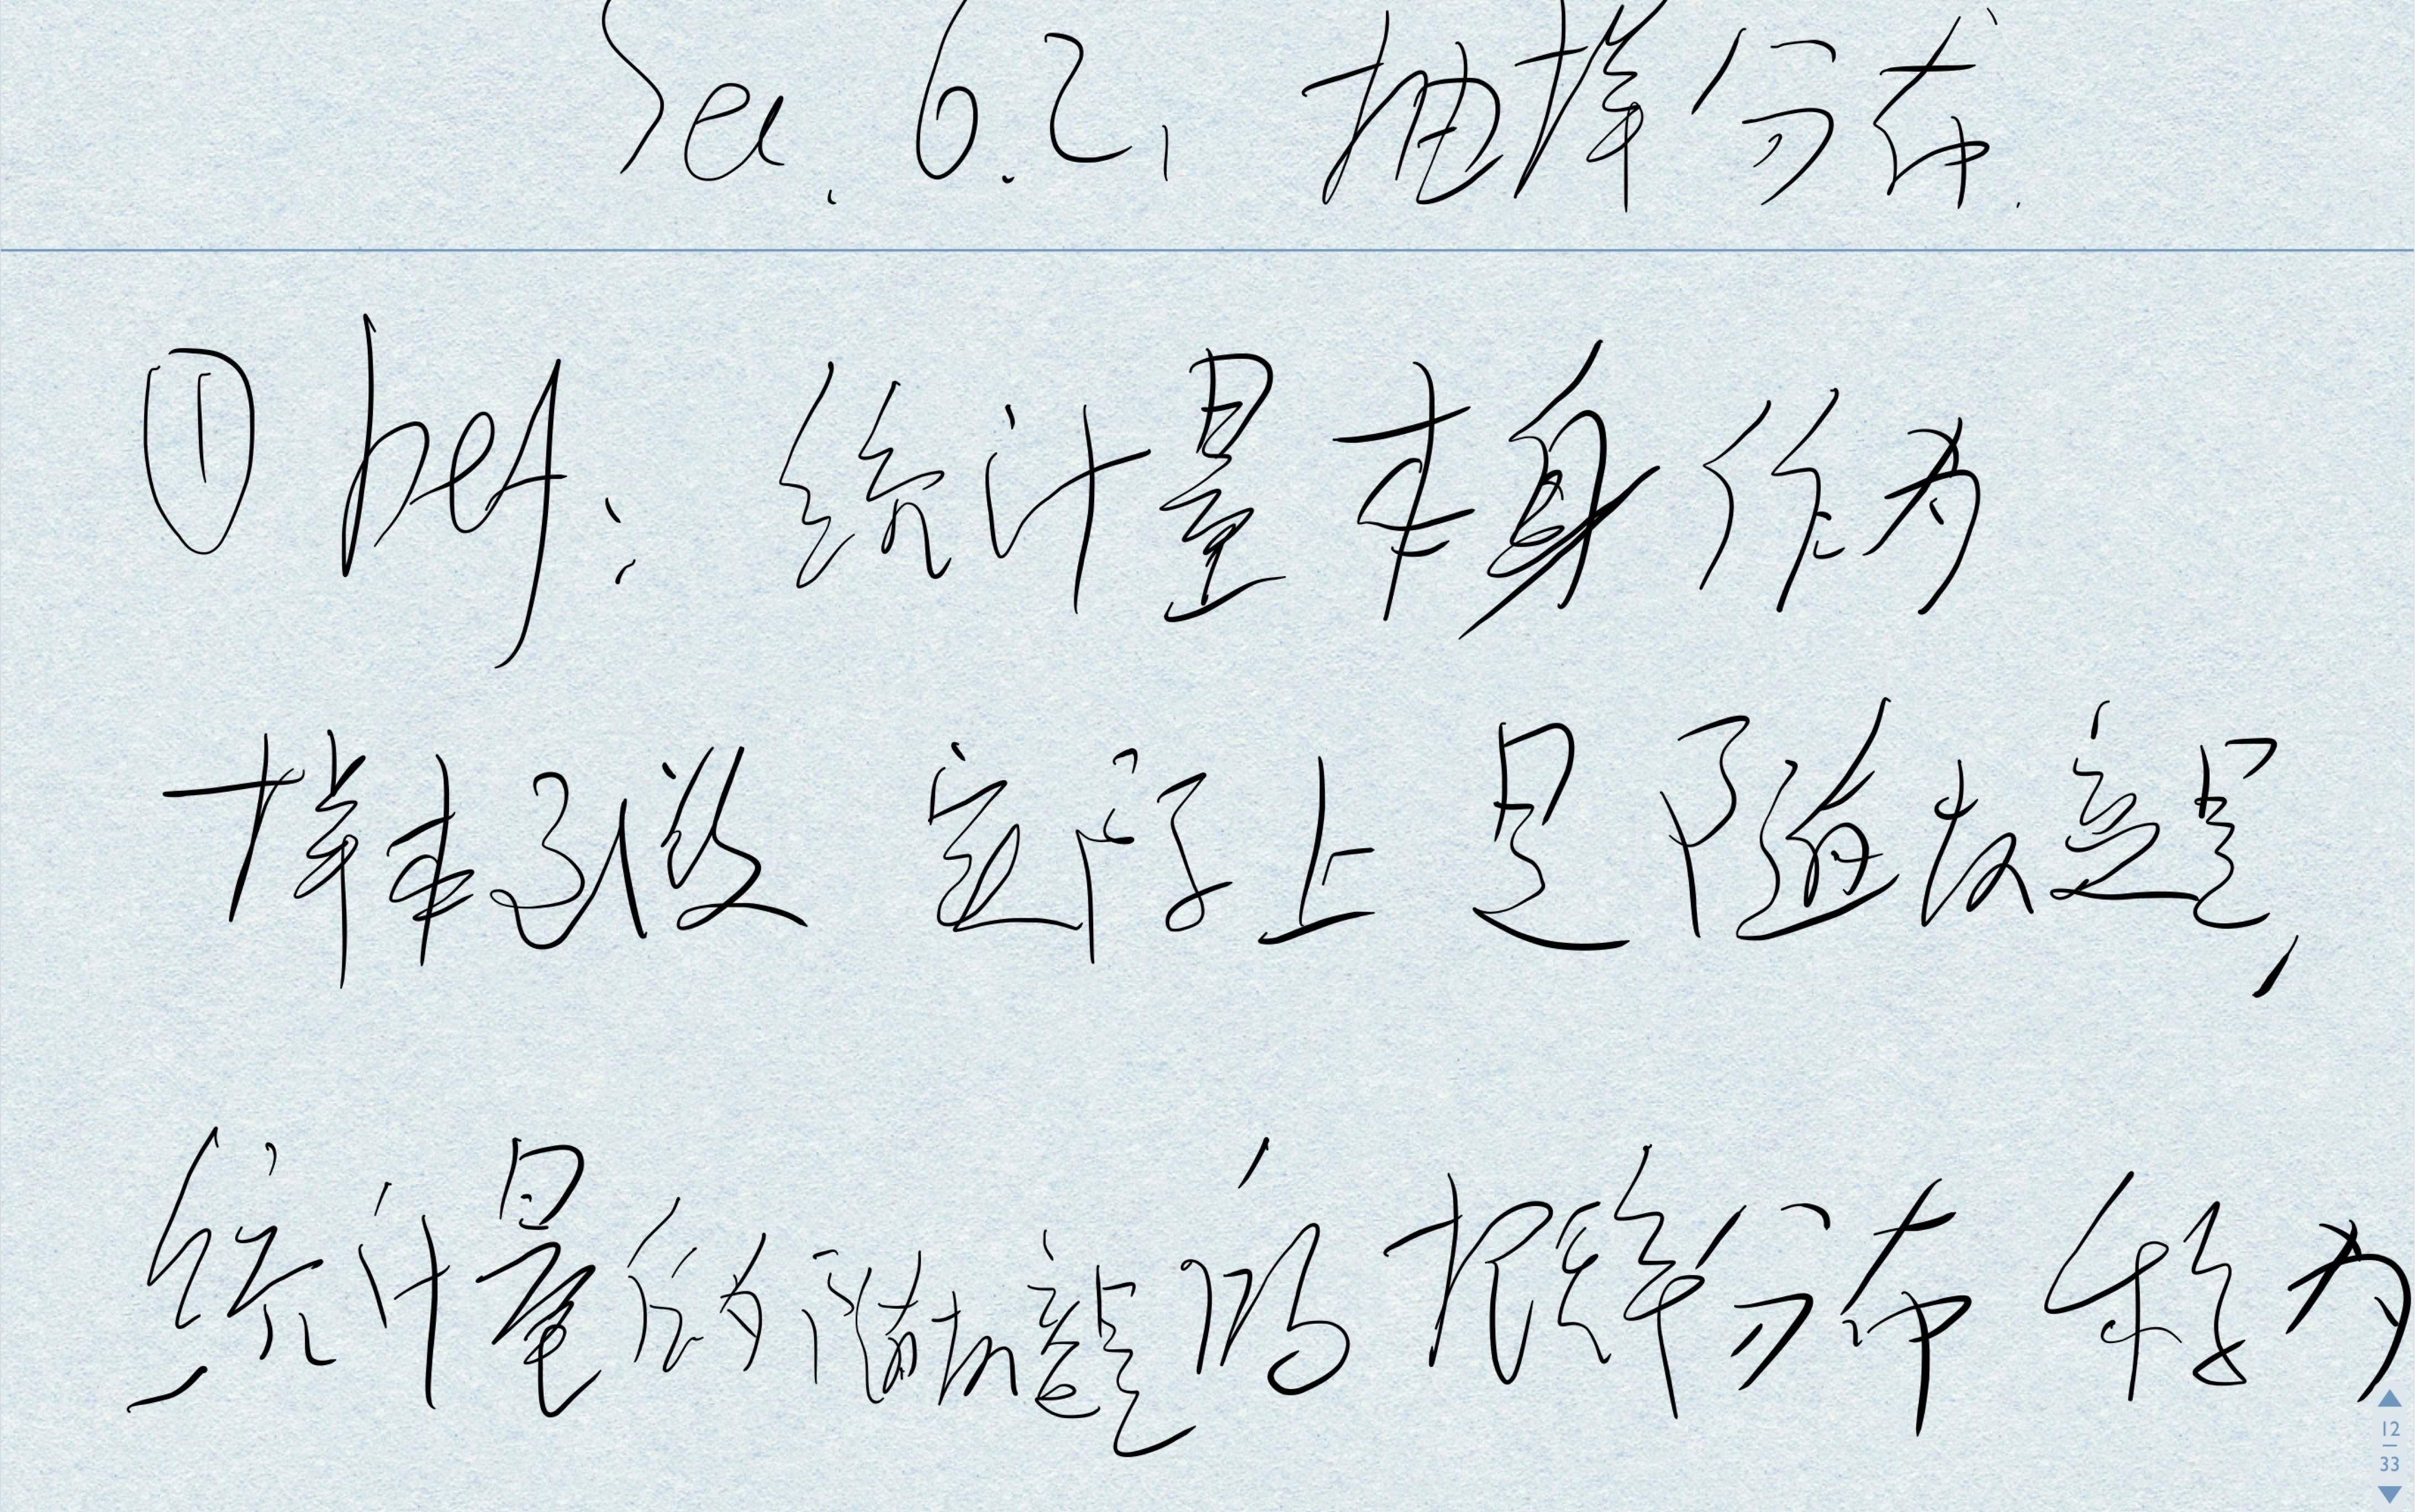 Sec. 6.2, 抽样分布.
① Def: 统计量本身作为
样本函数 实际上是随机变量,
统计量作为随机变量的概率分布 称为
12
33